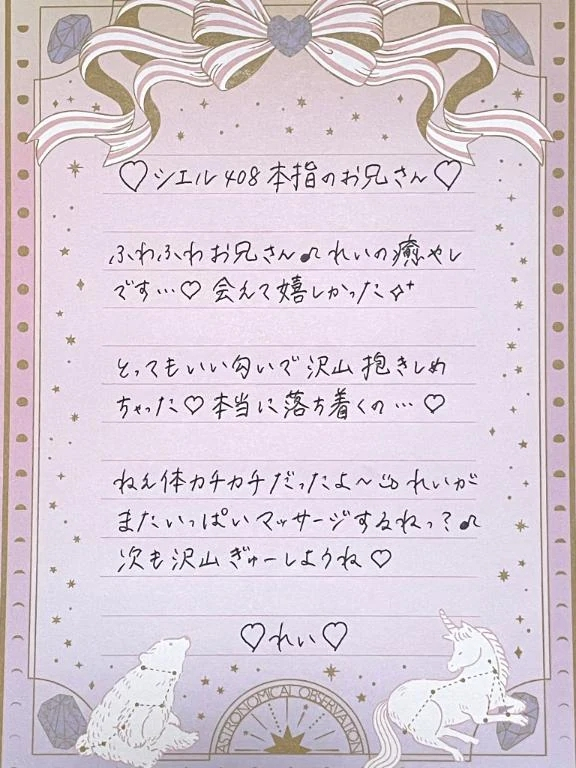 ♡シエル408本指のお兄さん♡
ふわふわお兄さん♫れいの癒やし
です…♡ 会えて嬉しかった✧⁺
とってもいい匂いで沢山抱きしめ
ちゃった♡本当に落ち着くの…♡
ねぇ体カチカチだったよ〜 れいが
またいっぱいマッサージするねっ?♫
次も沢山ぎゅーしようね♡
♡れい♡
ASTRONOMICAL OBSERVATION